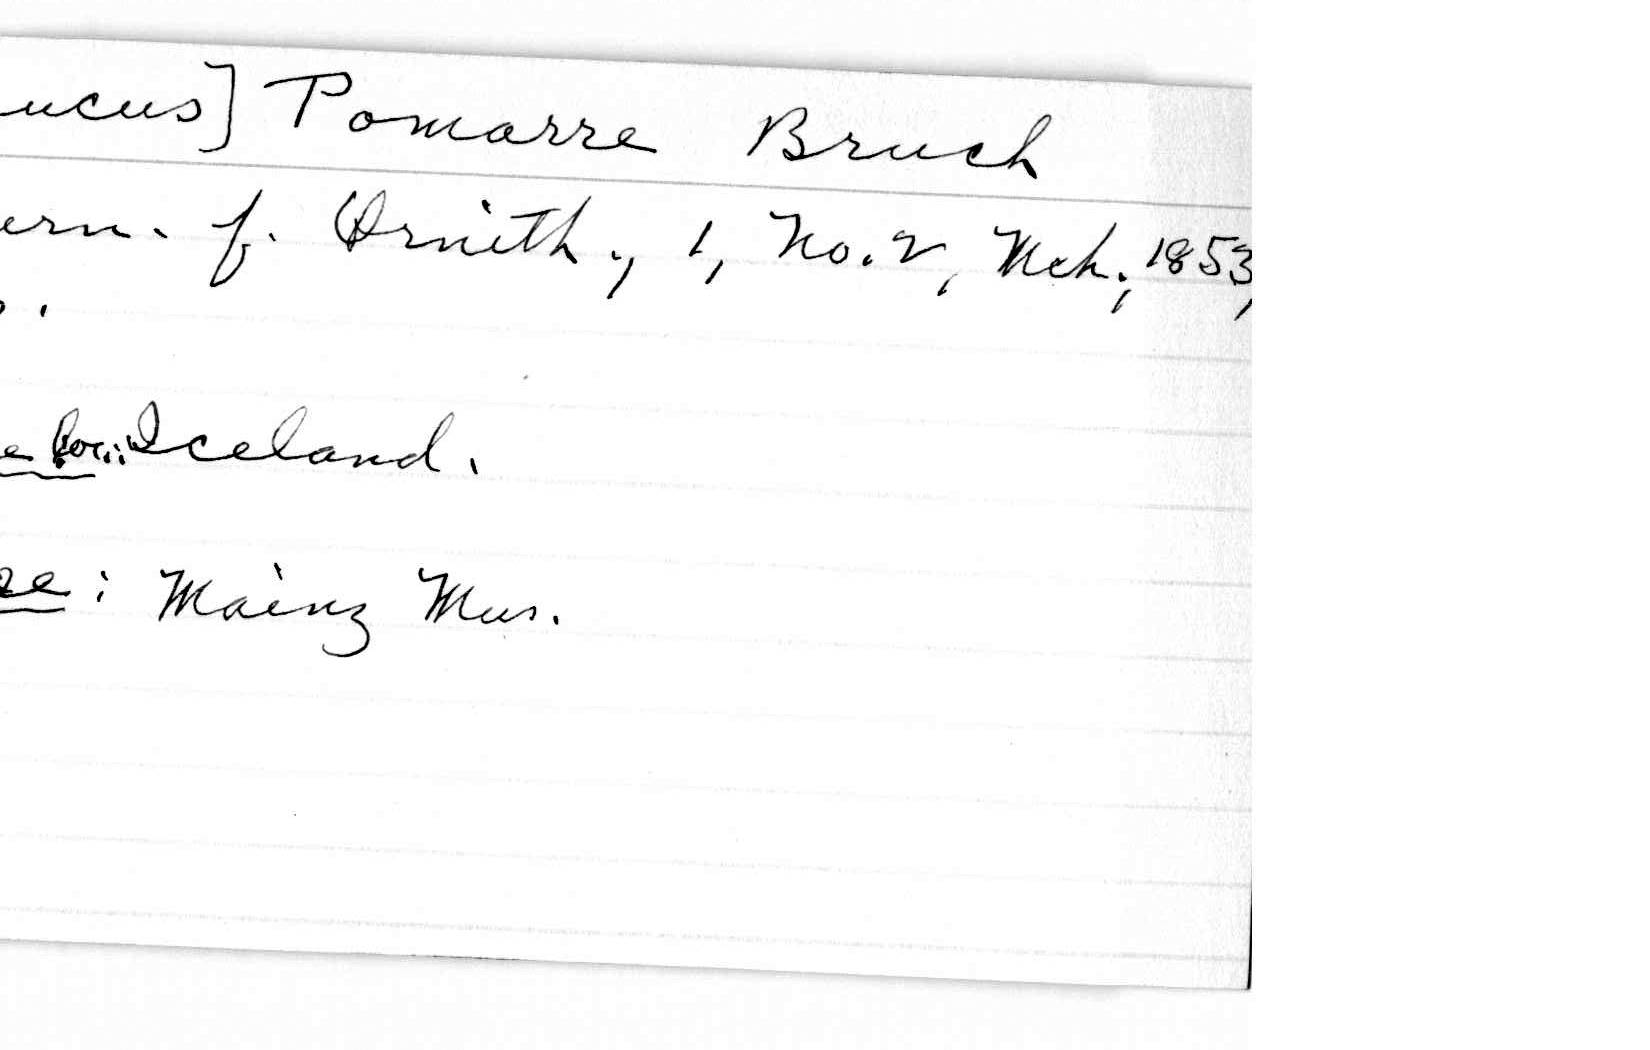 ucus] Pomarre Bruch
ern. f. Ornith., 1, No. 2, Mch., 1853,
e loc.: Iceland.
pe: Mainz Mus.